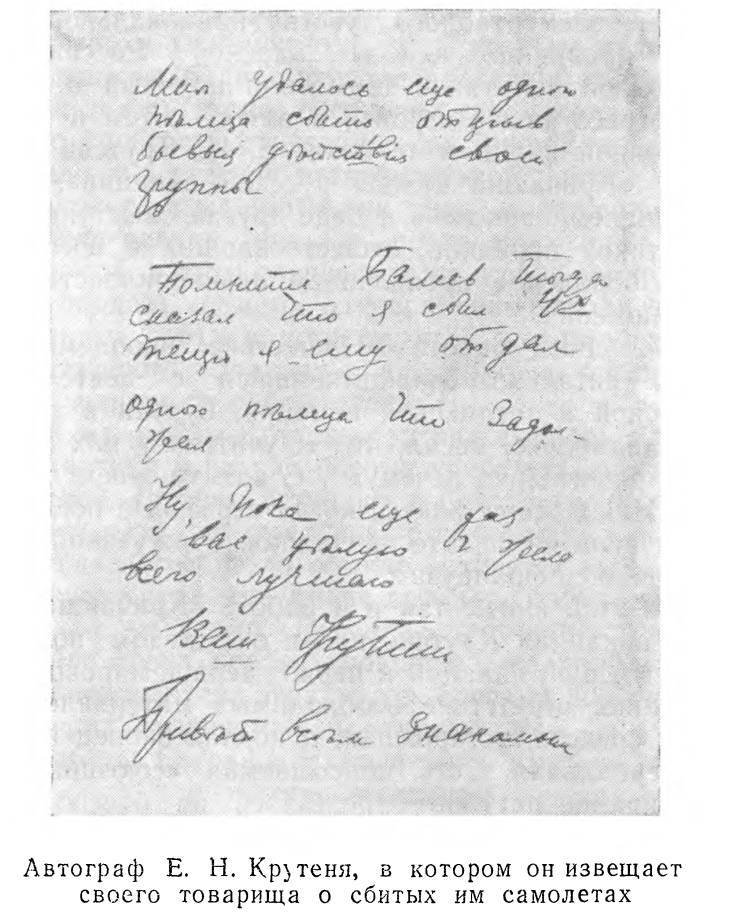 Мнѣ удалось еще одного
нѣмца сбить открывъ
боевыя дѣйствія своей
группы
Помните Балиев тогда
сказал что я сбил 4х
теперь я ему отдал
одного нѣмца что задол-
жал
Ну, пока еще раз
вас цѣлую и желаю
всего лучшаго
Ваш Крутень
Привѣт всѣм знакомым
Автограф Е. Н. Крутеня, в котором он извещает
своего товарища о сбитых им самолетах